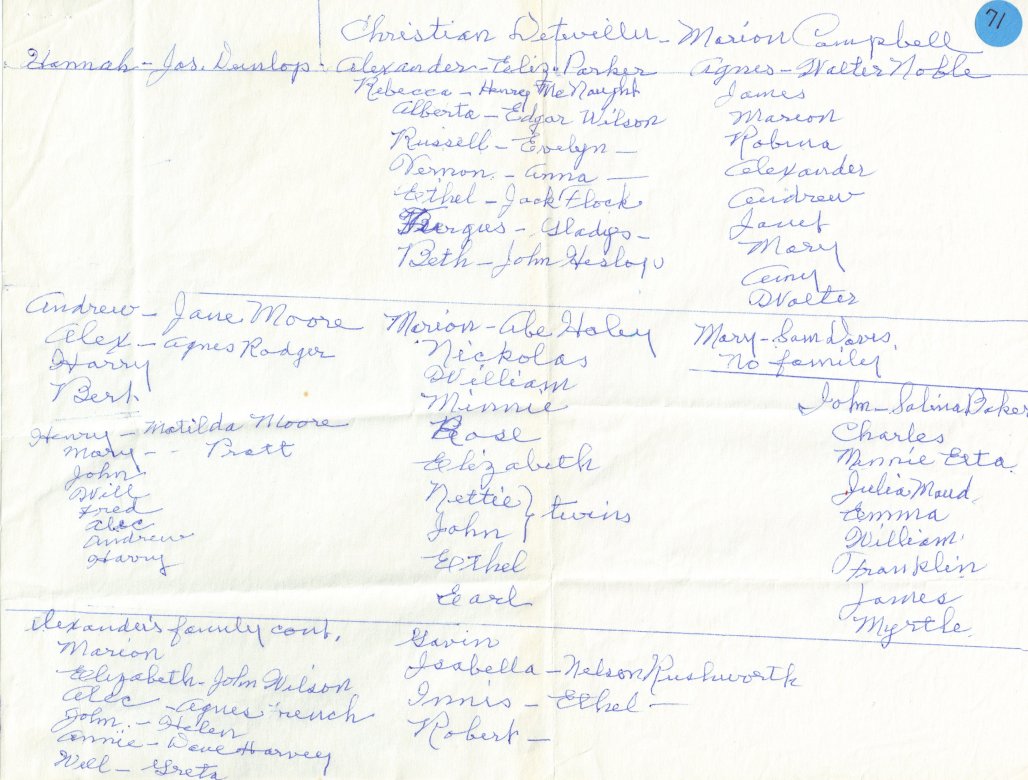 71
Christian Detwiller - Marion Campbell
Hannah - Jas. Dunlop
Alexander - Eliz. Parker
Rebecca - Henry McNaught
Alberta - Edgar Wilson
Russell - Evelyn -
Vernon. - Anna -
Ethel - Jack Flock
Fergus - Gladys -
Beth - John Heslop
Agnes - Walter Noble
James
Marion
Robina
Alexander
Andrew
Janet
Mary
Amy
Walter
Andrew - Jane Moore
Alex - Agnes Rodger
Harry
Bert
Henry - Matilda Moore
Mary - - Pratt
John
Will
Fred
Alec
Andrew
Harry
Marion - Abe Holey
Nickolas
William
Minnie
Rose
Elizabeth
Nettie } twins
John
Ethel
Earl
Mary - Sam Davis.
No family
John - Salina Baker
Charles
Minnie Etta.
Julia Maud.
Emma
William
Franklin
James
Myrtle.
Alexander's family cont.
Marion
Elizabeth - John Wilson
Alec - Agnes
John. - Helen
Annie - Dave Harvey
Will - Greta
Gavin
Isabella - Nelson Rushworth
Innis - Ethel -
Robert -